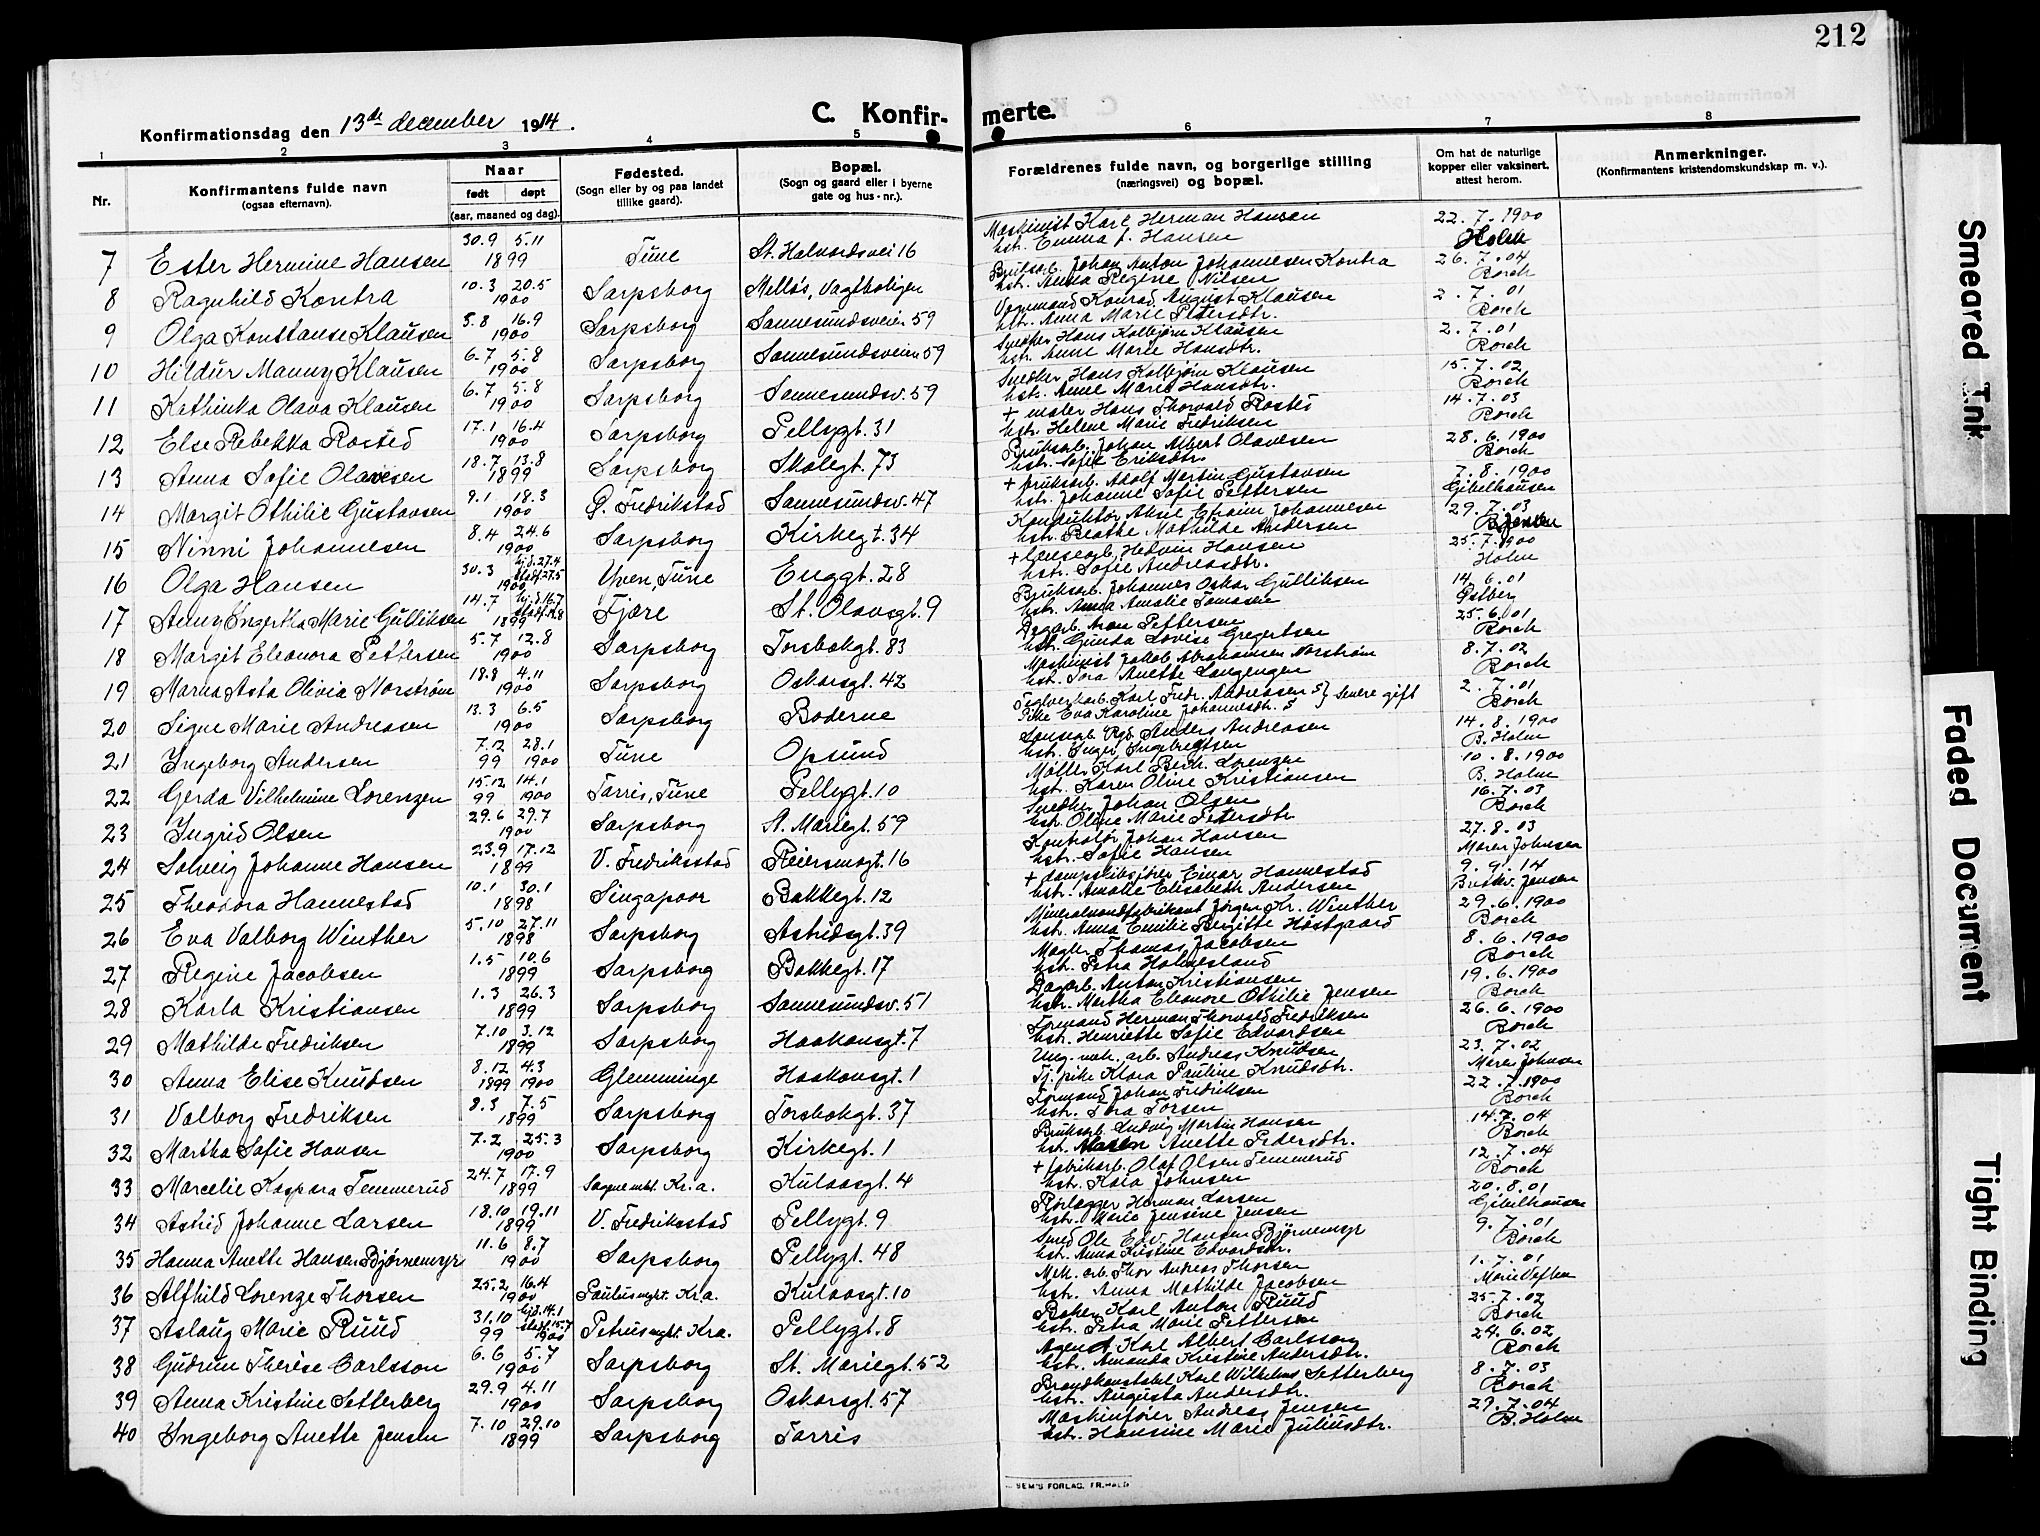 212
Konfirmationsdag den 13de december 1914.
C. Konfir-
merte.
1 2 3 4 5 6 7 8
Nr.
Konfirmantens fulde navn
(ogsaa efternavn).
Naar
født døpt
(aar, maaned og dag).
Fødested.
(Sogn eller by og paa landet
tillike gaard).
Bopæl.
(Sogn og gaard eller i byerne
gate og hus-nr.).
Forældrenes fulde navn, og borgerlige stilling
(næringsvei) og bopæl.
Om hat de naturlige
kopper eller vaksinert,
attest herom.
Anmerkninger.
(Konfirmantens kristendomskundskap m. v.).
7 Ester Hermine Hansen 30.9 5.11 1899 Tune St. Halvardsvei 16 Maskinist Karl Herman Hansen hstr. Emma f. Hansen 22.7.1900 Holm
8 Ragnhild Kontra 10.3 20.5 1900 Sarpsborg Melløs, Vagtboligen Bruksarb. Johan Anton Johannesen Kontra hstr. Anna Regine Nilsen 26.7.04 Borch
9 Olga Konstanse Klausen 5.8 16.9 1900 Sarpsborg Sannesundsveien 59 Vognmand Konrad August Klausen hstr. Anna Marie Petersdtr. 2.7.01 Borch
10 Hildur Manny Klausen 6.7 5.8 1900 Sarpsborg Sannesundsveien 59 Snedker Hans Kolbjørn Klausen hstr. Anne Marie Hansdtr. 2.7.01 Borch
11 Kathinka Olava Klausen 6.7 5.8 1900 Sarpsborg Sannesundsv. 59 Snedker Hans Kolbjørn Klausen hstr. Anne Marie Hansdtr. 15.7.02 Borch
12 Else Rebekka Rosted 17.1 16.4 1900 Sarpsborg Pellygt. 31 + maler Hans Thorvald Rosted hstr. Helene Marie Fredriksen 14.7.03 Borch
13 Anna Sofie Olavesen 18.7 13.8 1899 Sarpsborg Skolegt. 73 Bruksarb. Johan Albert Olavesen hstr. Sofie Eriksdtr. 28.6.1900 Borch
14 Margit Othilie Gustavsen 9.1 18.3 1900 G. Fredrikstad Sannesundsv. 47 + bruksarb. Adolf Martin Gustavsen hstr. Johanne Sofie Pettersen 7.8.1900 Gibelhausen
15 Ninni Johannesen 8.4 24.6 1900 Sarpsborg Kirkegt. 34 Konduktør Aksel Efraim Johannesen hstr. Beathe Mathilde Andersen 29.7.03
16 Olga Hansen 30.3 hj.d. 27.4 stadf. 27.5 1900 Yven, Tune Enggt. 28 + lenseagb. Hedvin Hansen hstr. Sofie Andreasdtr. 25.7.1900 Holm
17 Anny Ingerthа Marie Gulliksen 14.7 hj.d. 16.7 1899 Fjære St. Olavsgt. 9 Bruksarb. Johannes Oskar Gulliksen hstr. Anna Amalie Tomasen 14.6.01 Østberg
18 Margit Eleonora Pettersen 5.7 12.8 1900 Sarpsborg Torsbekgt. 83 Dagarb. Aron Pettersen hstr. Gunda Lovise Gregertsen 25.6.01 Borch
19 Marna Asta Olivia Norstrøm 18.8 4.11 1900 Sarpsborg Oskarsgt. 42 Maskinist Jakob Abrahamsen Norstrøm hstr. Tora Anette Langengen 8.7.02 Borch
20 Signe Marie Andreasen 13.3 6.5 1900 Sarpsborg Boderne Teglverksarb. Karl Fredr. Andreasen Pike Eva Karoline Johannesdtr. } senere gift 2.7.01 Borch
21 Ingeborg Andersen 7.12 99 28.1 1900 Tune Opsund Lensearb. Anders Andreasen hstr. Inger Ingebretsen 14.8.1900 B. Holm
22 Gerda Vilhelmine Lorenzen 15.12 99 14.1 1900 Tarris, Tune Pellygt. 10 Møller Karl Berh. Lorenzen hstr. Karen Oline Kristiansen 10.8.1900 B. Holm
23 Ingrid Olsen 29.6 29.7 1900 Sarpsborg St. Mariegt. 59 Snedker Johan Olsen hstr. Oline Marie Petersdtr. 16.7.03 Borch
24 Solveig Johanne Hansen 23.9 17.12 1899 V. Fredriksstad Reiersensgt. 16 Kontrolør Johan Hansen hstr. Sofie Hansen 27.8.03 Maren Johnsen
25 Theodora Hannestad 10.1 30.1 1898 Singapoor Bakkegt. 12 + dampskibsfører Einar Hannestad hstr. Amalie Elisabeth Andersen 9.9.14 Jensen
26 Eva Valborg Winther 5.10 27.11 1898 Sarpsborg Astridsgt. 39 Mineralvandfabrikant Jørgen Kr. Winther hstr. Anna Emilie Bergitte Høstgaard 29.6.1900 Borch
27 Regine Jacobsen 1.5 10.6 1899 Sarpsborg Bakkegt. 17 Mægler Thomas Jacobsen hstr. Petra Holmesland 8.6.1900 Borch
28 Karla Kristiansen 1.3 26.3 1899 Sarpsborg Sannesundsv. 51 Dagarb. Anton Kristiansen hstr. Martha Eleonore Othilie Jensen 19.6.1900 Borch
29 Mathilde Fredriksen 7.10 3.12 1899 Sarpsborg Haakonsgt. 7 Formand Herman Thorvald Fredriksen hstr. Henriette Sofie Edvardsen 26.6.1900 Borch
30 Anna Elise Knudsen 8.12 1899 4.3 1900 Glemminge Haakonsgt. 1 Ung. mek. arb. Andreas Knudsen Tj. pike Klara Pauline Knudsdtr. 23.7.02 Maren Johnsen
31 Valborg Fredriksen 8.3 7.5 1899 Sarpsborg Torsbekgt. 37 Formand Johan Fredriksen hstr. Tora Torsen 22.7.1900 Borch
32 Martha Sofie Hansen 7.2 25.3 1900 Sarpsborg Kirkegt. 1 Bruksarb. Ludvig Martin Hansen hstr. Maren Anette Pedersdtr. 14.7.04 Borch
33 Marcelie Kaspara Temmerud 24.7 17.9 1899 Sagene mht. Kr.a. Kulaasgt. 4 + fabrikarb. Olaf Olsen Temmerud hstr. Kaia Johnsen 12.7.04 Borch
34 Astrid Johanne Larsen 18.10 19.11 1899 V. Fredriksstad Pellygt. 9 Rørlægger Herman Larsen hstr. Marie Jensine Jensen 20.8.01 Gibelhausen
35 Hanna Anette Hansen Bjørnemyr 11.6 8.7 1900 Sarpsborg Pellygt. 48 Smed Ole Edv. Hansen Bjørnemyr hstr. Anna Kristine Edvardsdtr. 9.7.01 Borch
36 Alfhild Lorenze Thorsen 25.2 16.4 1900 Paulus mght. Kr.a. Kulaasgt. 10 Mek. arb. Thor Andreas Thorsen hstr. Anna Mathilde Jacobsen 1.7.01
37 Aslaug Marie Ruud 31.10 99 hj.d. 14.1 stadf. 15.7 1900 Petrus mght. Kra. Pellygt. 8 Baker Karl Anton Ruud hstr. Petra Marie Pettersen 25.7.02 Borch
38 Gudrun Therese Carlsson 6.6 5.7 1900 Sarpsborg St. Mariegt. 52 Agent Karl Albert Carlsson hstr. Amanda Kristine Andersdtr. 24.6.02 Borch
39 Anna Kristine Setterberg 29.9 4.11 1900 Sarpsborg Oskarsgt. 57 Brandkonstabel Karl Wilhelms Setterberg hstr. Augusta Andersdtr. 8.7.03 Borch
40 Ingeborg Anette Jensen 7.10 29.10 1899 Sarpsborg Tarris Maskinfører Andreas Jensen hstr. Hansine Marie Juliusdtr. 29.7.04 B. Holm
SEM'S FORLAG, FR.HALD
Smeared Ink
Faded Document
Tight Binding